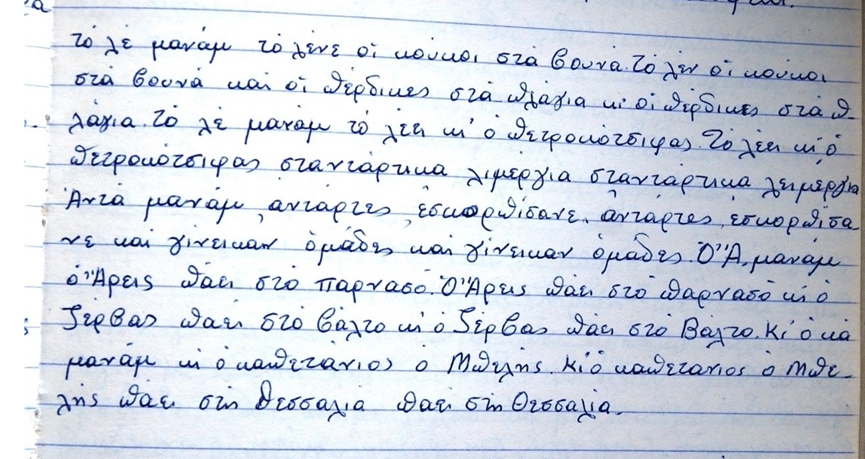 τό λέ μανάμ τό λένε οἱ κούκοι στά βουνά. τό λέν οἱ κούκοι
στά βουνά καί οἱ πέρδικες στά πλάγια κι οἱ πέρδικες στά π-
λάγια. τό λέ μανάμ τό λέει κι' ὁ πετροκότσιφας. Τό λέει κι ὁ
πετροκότσιφας σταντάρτικα λιμέργια σταντάρτικα λειμέργια
Ἀντά μανάμ, αντάρτες ἐσκορπίσανε. ἀντάρτες, ἐσκορπίσα-
νε καί γίνεικαν ὁμάδες καί γίνεικαν ὁμάδες. Ὁ Ἄ, μανάμ
ὁ Ἄρεις πάει στό παρνασό. Ὁ Ἄρεις πάει στό παρνασό κι ὁ
Ζέρβας πάει στό βάλτο κι ὁ Ζέρβας πάει στό Βάλτο. Κι ὁ κα
μανάμ κι ὁ καπετάνιος ὁ Μπελής. Κι ὁ καπετάνιος ὁ Μπε-
λής πάει στή Θεσσαλία πάει στή Θεσσαλία.